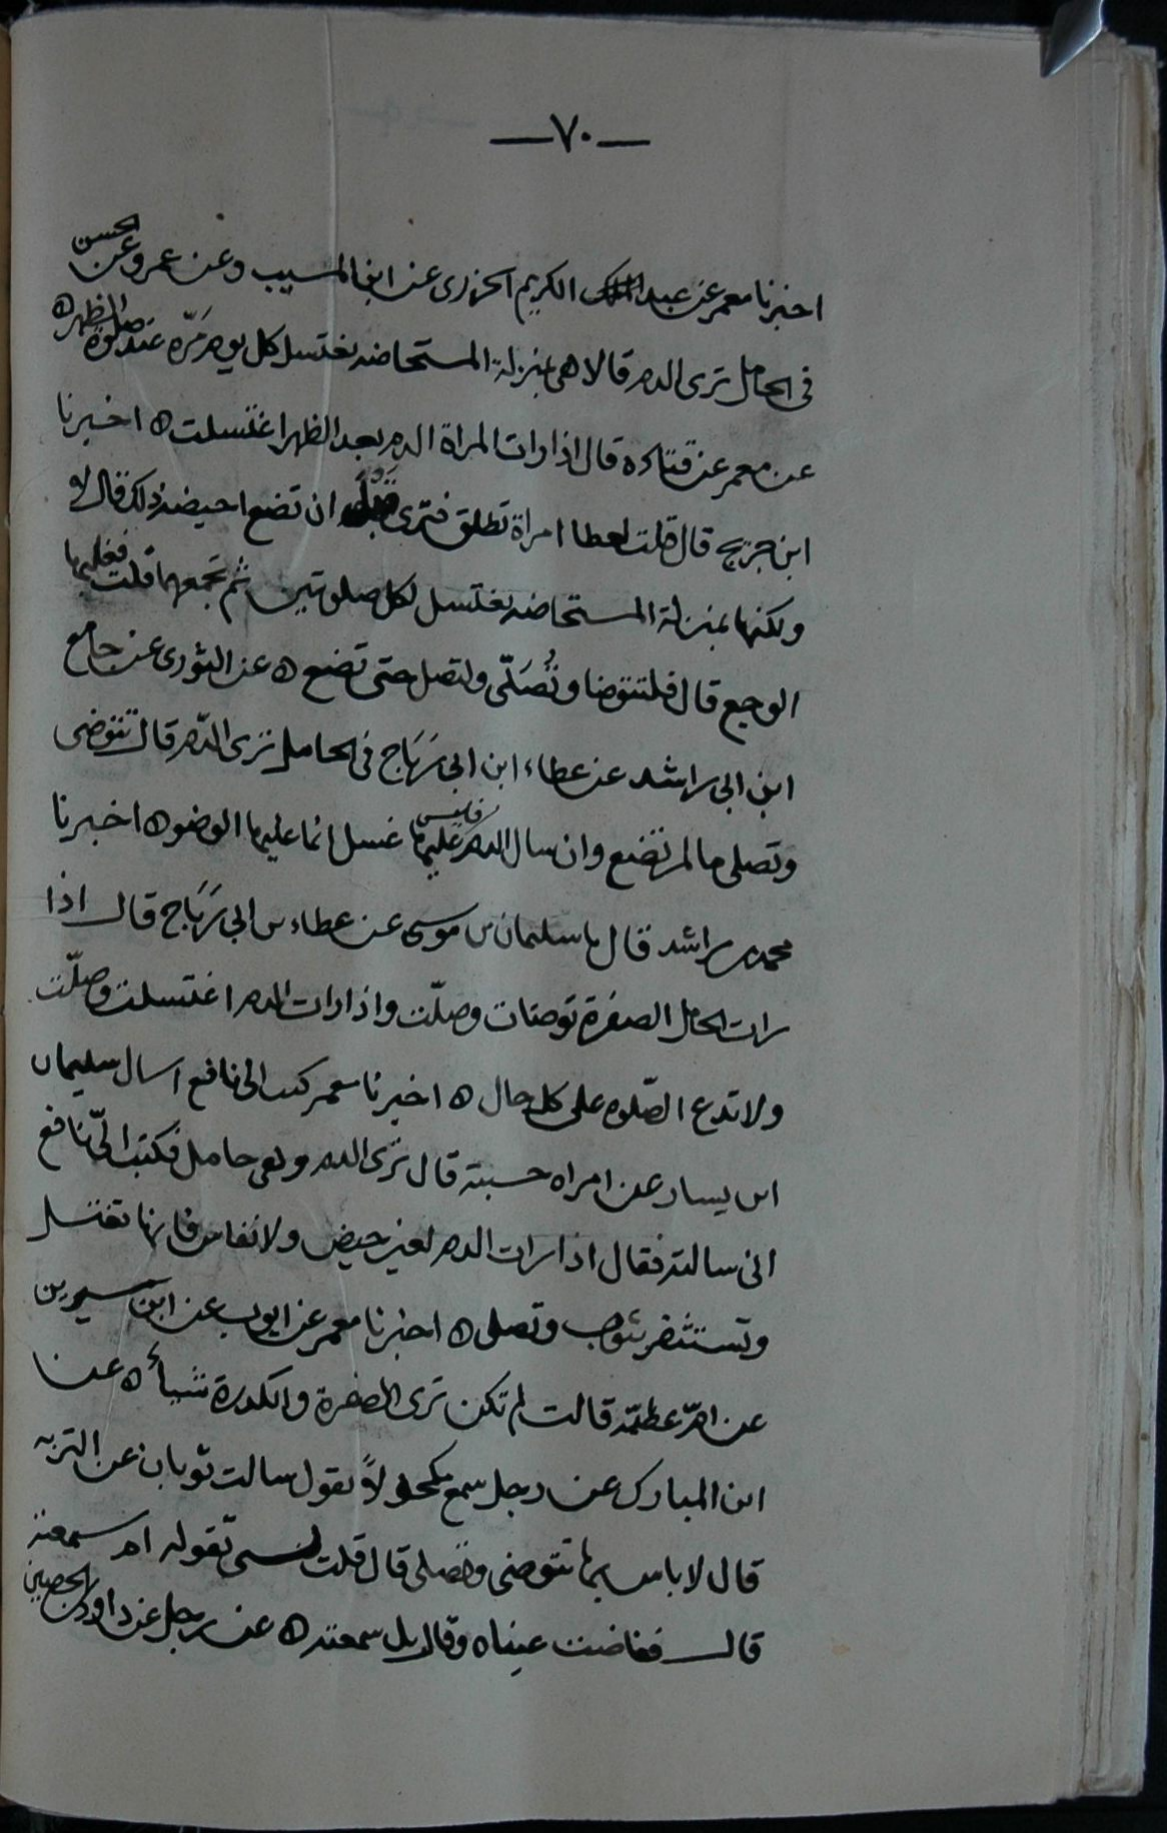 —٧٠—
اخبرنا معمر عن عبد الكريم الجزرى عن ابن المسيب وعن عمرو عن الحسن
فى الحامل ترى الدم قالا هى بمنزلة المستحاضه تغتسل كل يوم مَرّه عند صلوة الظهر ه
عن معمر عن قتاده قال اذا رات المراة الدم بعد الظهر اغتسلت ه اخبرنا
ابن جريج قال قلت لعطا امراة تطلق فترى قبل ان تضع احيضة ذلك قال لا
ولكنها بمنزلة المستحاضه تغتسل لكل صلوتين ثم تجمعهما قلت فغلبها
الوجع قال فلتتوضا وتُصَلّى ولتصل حتى تضع ه عن الثورى عن جامع
ابن ابى راشد عن عطاء ابن ابى رَبَاح فى الحامل ترى الدّم قال تتوضى
وتصلى مالم تضع وان سال الدم فليس عليها غسل انما عليها الوضو ه اخبرنا
محمد بن راشد قال ما سليمان بن موسى عن عطاء بن ابى رَبَاح قال اذا
رات الحامل الصفرة توضات وصلّت واذا رات الدم اغتسلت وصلّت
ولا تدع الصّلوه على كل حال ه اخبرنا معمر كتب الى نافع اسال سليمان
ابن يسار عن امراه حسبته قال ترى الدم وهى حامل فكتب الىّ نافع
انى سالته فقال اذا رات الدم لغير حيض ولا نفاس فانها تغتسل
وتستثفر بثوب وتصلى ه اخبرنا معمر عن ايوب عن ابن سيرين
عن امّ عطيّه قالت لم تكن ترى الصفرة والكدرة شيأ ه عن
ابن المبارك عن رجل سمع مكحولاً يقول سالت ثوبان عن التربه
قال لا باس بها تتوضى وتصلى قال قلت شى تقوله ام سمعته
قال ففاضت عيناه وقال بل سمعته ه عن رجل عن داود بن الحصين